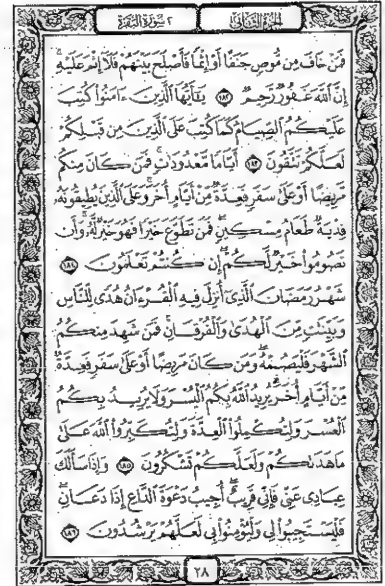 الجزء الثاني ٢ سورة البقرة
فَمَنْ خَافَ مِن مُّوصٍ جَنَفًا أَوْ إِثْمًا فَأَصْلَحَ بَيْنَهُمْ فَلَا إِثْمَ عَلَيْهِ
إِنَّ ٱللَّهَ غَفُورٌ رَّحِيمٌ ١٨٢ يَٰٓأَيُّهَا ٱلَّذِينَ ءَامَنُوا۟ كُتِبَ
عَلَيْكُمُ ٱلصِّيَامُ كَمَا كُتِبَ عَلَى ٱلَّذِينَ مِن قَبْلِكُمْ
لَعَلَّكُمْ تَتَّقُونَ ١٨٣ أَيَّامًا مَّعْدُودَٰتٍ فَمَن كَانَ مِنكُم
مَّرِيضًا أَوْ عَلَىٰ سَفَرٍ فَعِدَّةٌ مِّنْ أَيَّامٍ أُخَرَ وَعَلَى ٱلَّذِينَ يُطِيقُونَهُۥ
فِدْيَةٌ طَعَامُ مِسْكِينٍ فَمَن تَطَوَّعَ خَيْرًا فَهُوَ خَيْرٌ لَّهُۥ وَأَن
تَصُومُوا۟ خَيْرٌ لَّكُمْ إِن كُنتُمْ تَعْلَمُونَ ١٨٤
شَهْرُ رَمَضَانَ ٱلَّذِىٓ أُنزِلَ فِيهِ ٱلْقُرْءَانُ هُدًى لِّلنَّاسِ
وَبَيِّنَٰتٍ مِّنَ ٱلْهُدَىٰ وَٱلْفُرْقَانِ فَمَن شَهِدَ مِنكُمُ
ٱلشَّهْرَ فَلْيَصُمْهُ وَمَن كَانَ مَرِيضًا أَوْ عَلَىٰ سَفَرٍ فَعِدَّةٌ
مِّنْ أَيَّامٍ أُخَرَ يُرِيدُ ٱللَّهُ بِكُمُ ٱلْيُسْرَ وَلَا يُرِيدُ بِكُمُ
ٱلْعُسْرَ وَلِتُكْمِلُوا۟ ٱلْعِدَّةَ وَلِتُكَبِّرُوا۟ ٱللَّهَ عَلَىٰ
مَا هَدَىٰكُمْ وَلَعَلَّكُمْ تَشْكُرُونَ ١٨٥ وَإِذَا سَأَلَكَ
عِبَادِى عَنِّى فَإِنِّى قَرِيبٌ أُجِيبُ دَعْوَةَ ٱلدَّاعِ إِذَا دَعَانِ
فَلْيَسْتَجِيبُوا۟ لِى وَلْيُؤْمِنُوا۟ بِى لَعَلَّهُمْ يَرْشُدُونَ ١٨٦
٢٨